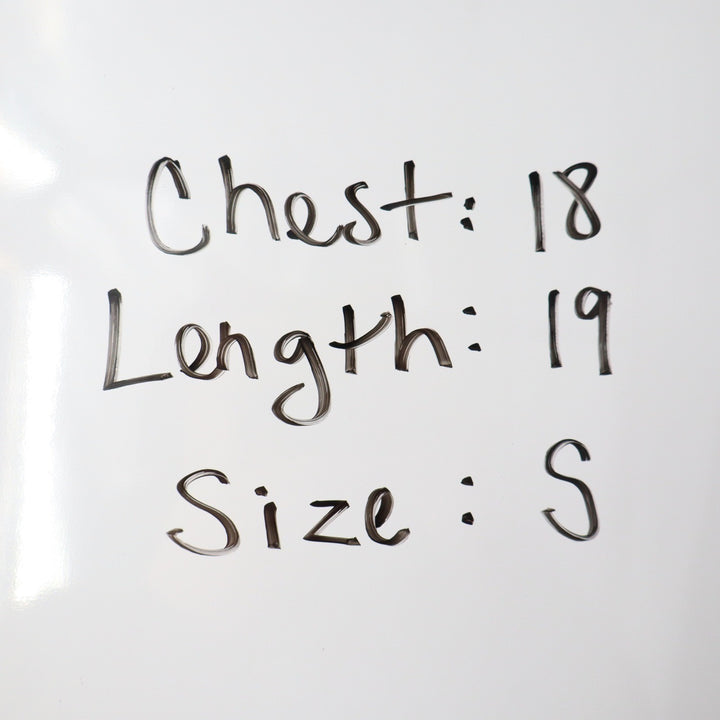 Chest: 18
Length: 19
Size: S